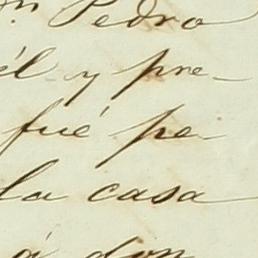 n Pedro
él y pre-
fué pe-
la casa
á don